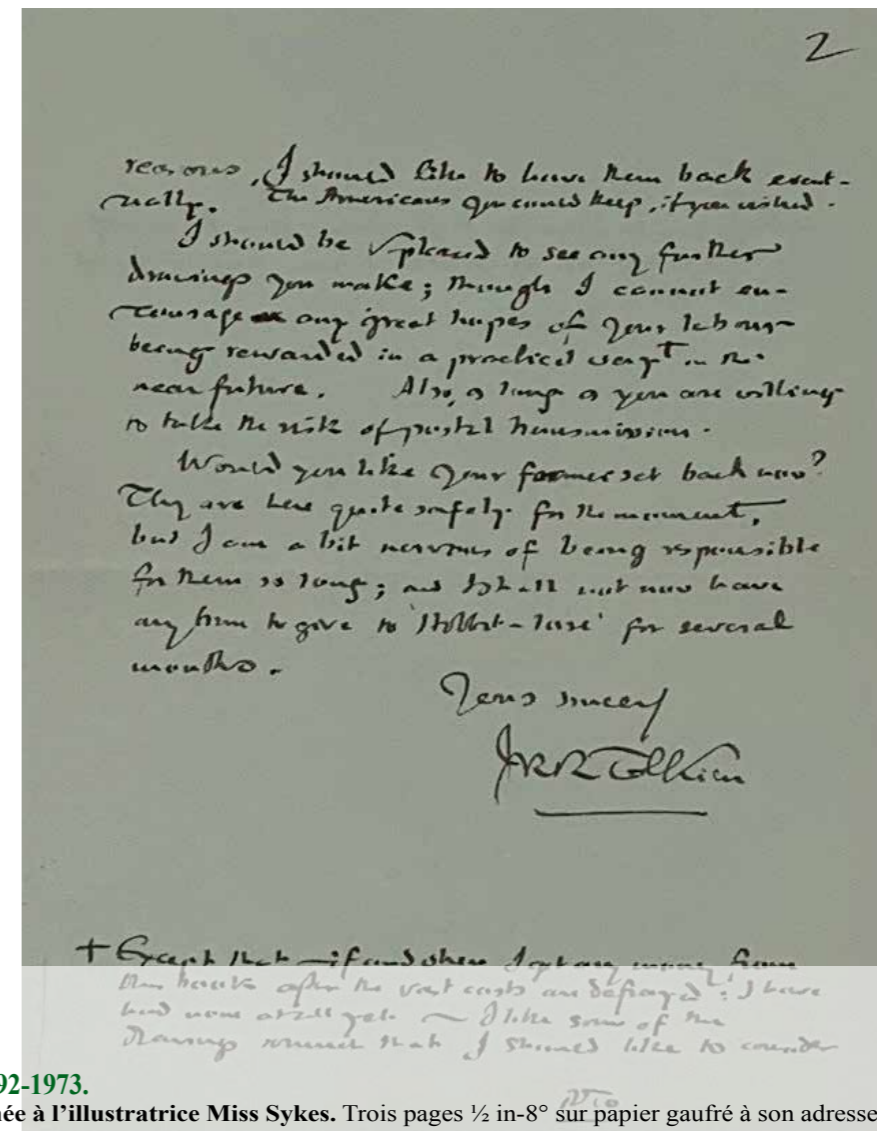 2
reasons, I should like to have them back event-
ually. The Americans you could keep, if you wished.
I should be pleased to see any further
drawings you make; though I cannot en-
courage any great hopes of your labour
being rewarded in a practical way † in the
near future. Also, as long as you are willing
to take the risk of postal transmission.
Would you like your former set back now?
They are here quite safely for the moment,
but I am a bit nervous of being responsible
for them so long; and I shall not now have
any time to give to 'Hobbit-lore' for several
months.
Yours sincerely
JRR Tolkien
+ Except that — if and when I get any money from
the books after the vast costs are defrayed: I have
had none at all yet — I like some of the
drawings so much that I should like to consider
PTO
92-1973.
née à l'illustratrice Miss Sykes. Trois pages ½ in-8° sur papier gaufré à son adresse